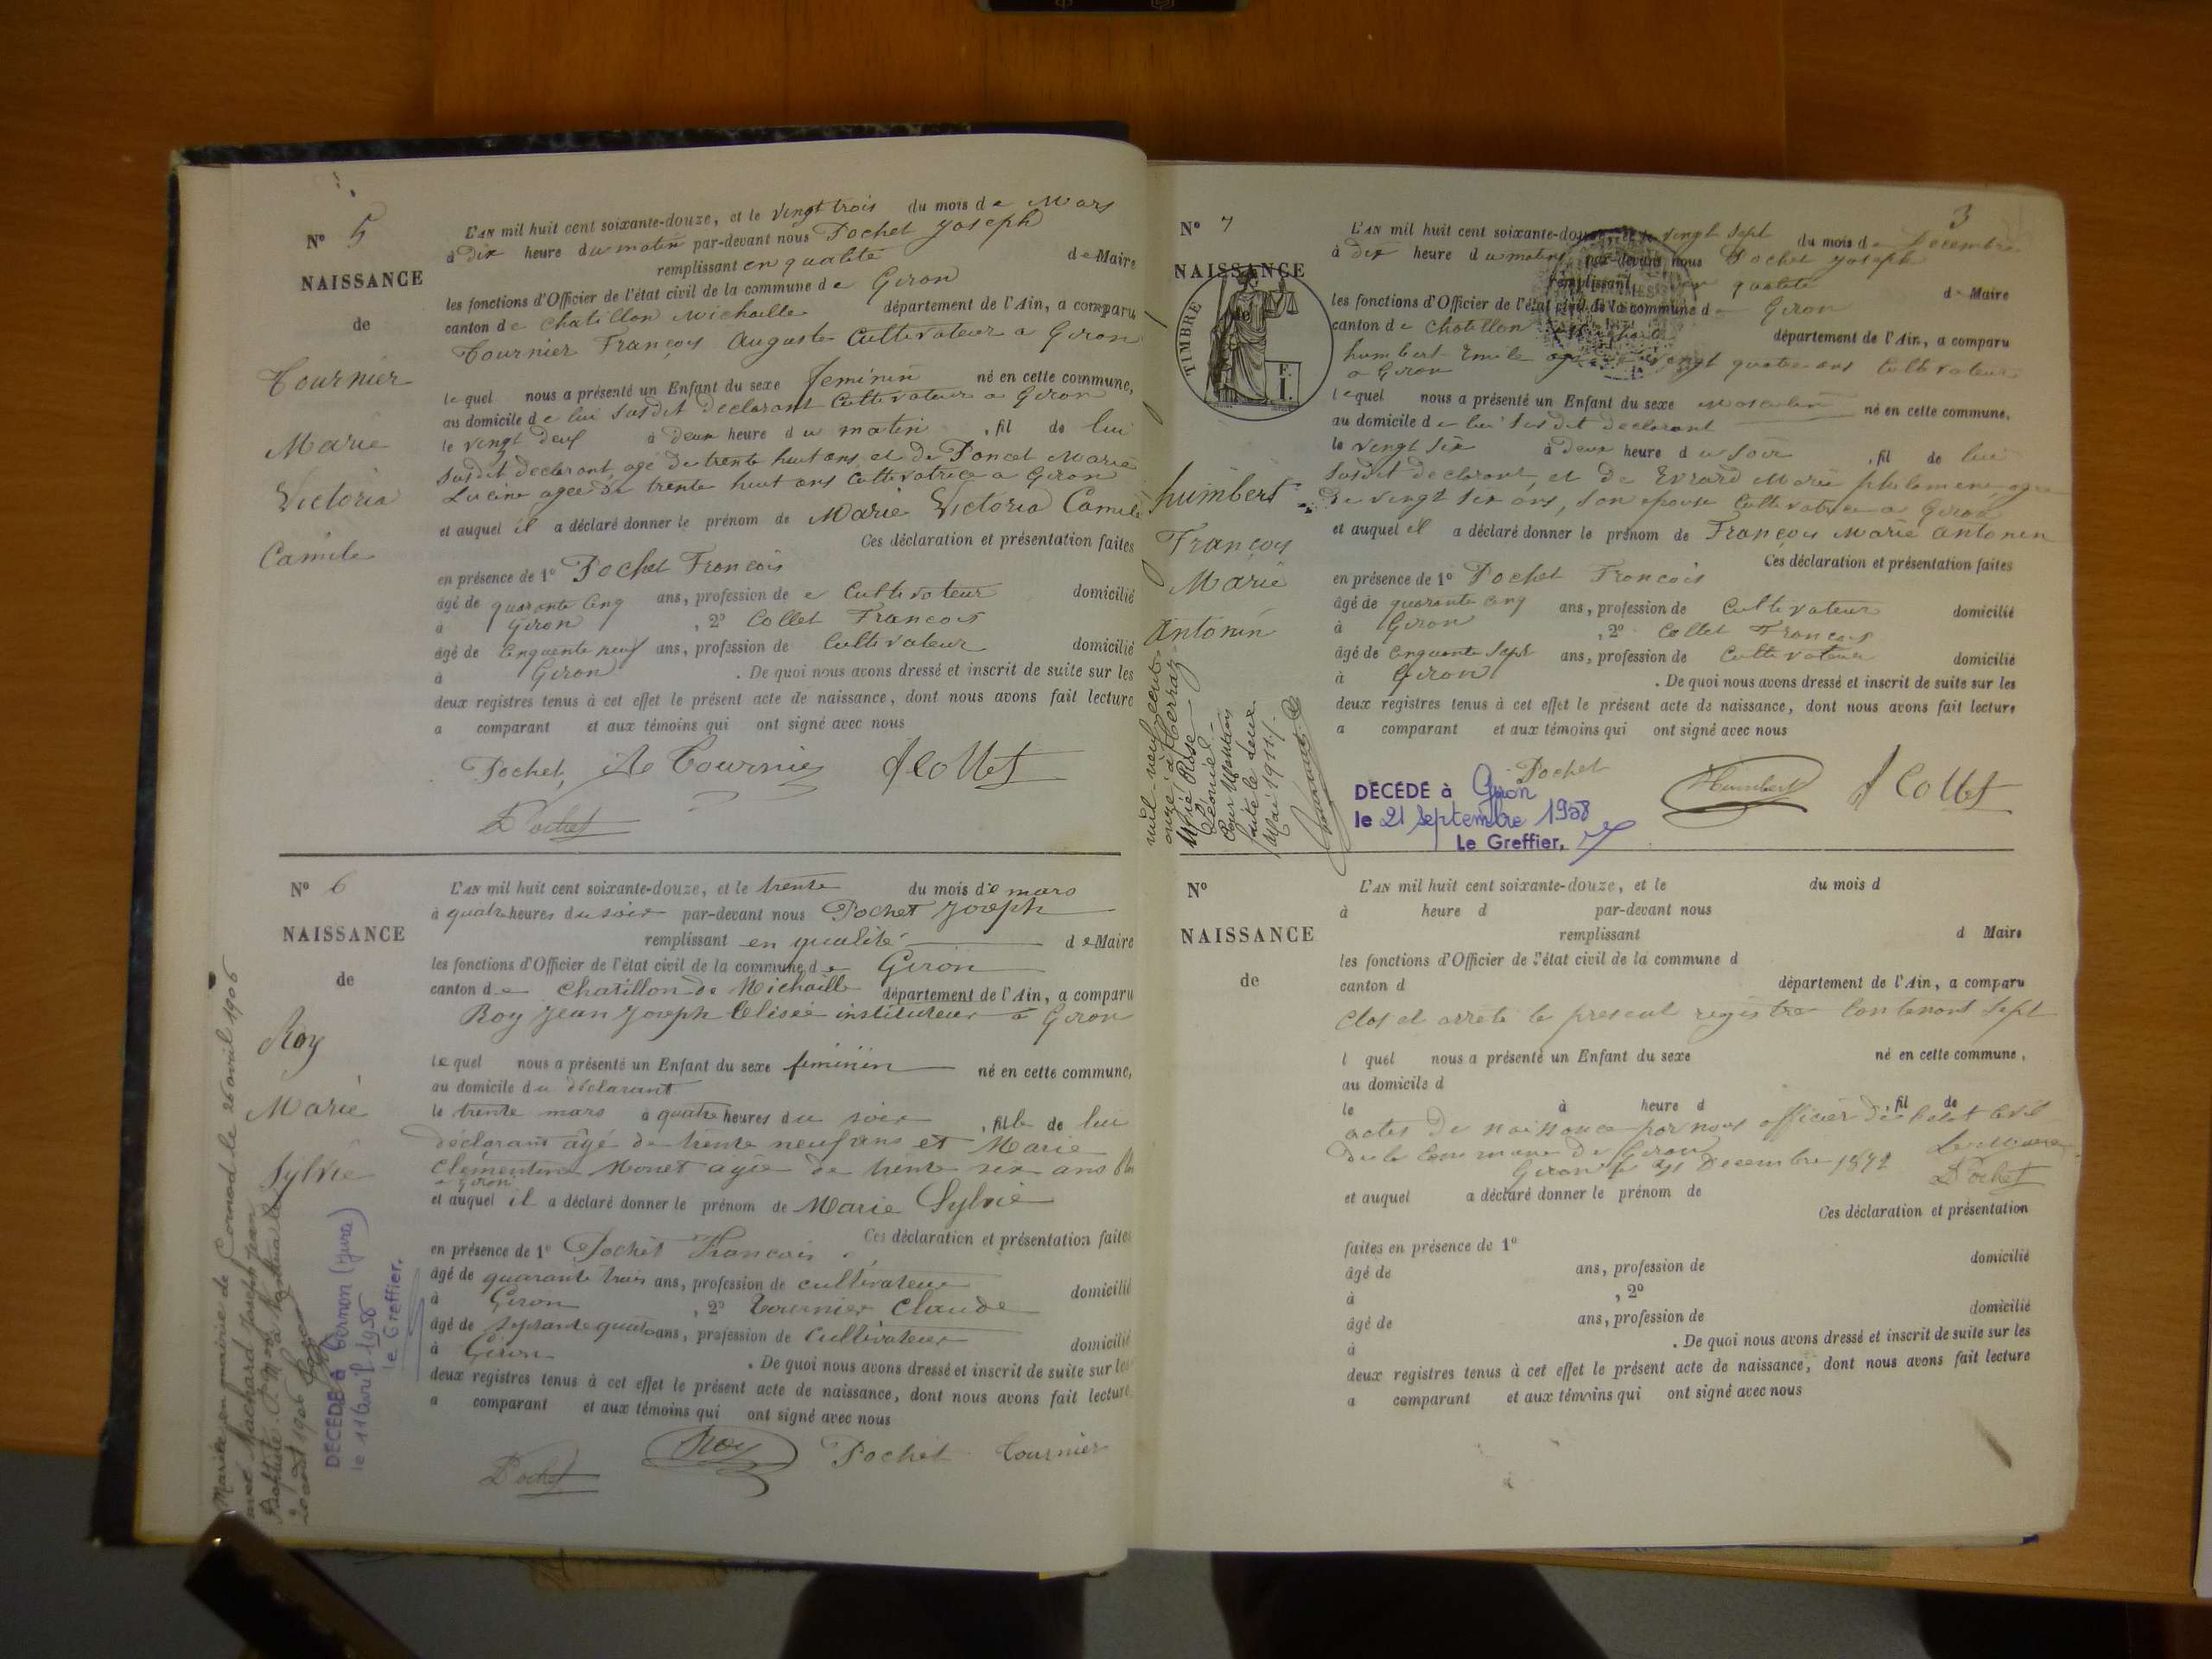 N° 5
NAISSANCE
de
Tournier
Marie
Victoria
Camile
L'AN mil huit cent soixante-douze, et le vingt trois du mois de Mars
à dix heure du matin par-devant nous Pochet Joseph
remplissant en qualité de Maire
les fonctions d'Officier de l'état civil de la commune de Giron
canton de Chatillon Michaille département de l'Ain, a comparu
Tournier François Auguste Cultivateur a Giron
lequel nous a présenté un Enfant du sexe feminin né en cette commune,
au domicile de lui susdit declarant Cultivateur a Giron
le vingt deux à deux heure du matin , fil de lui
susdit declarant, agé de trente huit ans et de Poncet Marie
Lucine agée de trente huit ans Cultivatrice a Giron
et auquel il a déclaré donner le prénom de Marie Victoria Camile
Ces déclaration et présentation faites
en présence de 1° Pochet François
âgé de quarante cinq ans, profession de Cultivateur domicilié
à Giron , 2° Collet François
âgé de cinquante neuf ans, profession de Cultivateur domicilié
à Giron . De quoi nous avons dressé et inscrit de suite sur les
deux registres tenus à cet effet le présent acte de naissance, dont nous avons fait lecture
a comparant et aux témoins qui ont signé avec nous
Pochet, Tournier f Collet
Pochet
N° 6
NAISSANCE
de
Roy
Marie
Sylvie
Mariée en mairie de Cornod le 26 avril 1906
avec Machard Joseph Jean
DÉCÉDÉ à (Jura)
le 11 avril 1958
le Greffier.
L'AN mil huit cent soixante-douze, et le trente du mois de mars
à quatre heures du soir par-devant nous Pochet Joseph
remplissant en qualité de Maire
les fonctions d'Officier de l'état civil de la commune de Giron
canton de Chatillon de Michaille département de l'Ain, a comparu
Roy Jean Joseph Elisée instituteur à Giron
lequel nous a présenté un Enfant du sexe féminin né en cette commune,
au domicile du déclarant
le trente mars à quatre heures du soir , fille de lui
déclarant âgé de trente neuf ans et Marie
Clémentine Monet agée de trente six ans
a Giron
et auquel il a déclaré donner le prénom de Marie Sylvie
Ces déclaration et présentation faites
en présence de 1° Pochet François
âgé de quarante trois ans, profession de cultivateur domicilié
à Giron , 2° Tournier Claude
âgé de septante quatre ans, profession de Cultivateur domicilié
à Giron . De quoi nous avons dressé et inscrit de suite sur les
deux registres tenus à cet effet le présent acte de naissance, dont nous avons fait lecture
a comparant et aux témoins qui ont signé avec nous
Roy Pochet Tournier
Pochet
3
N° 7
NAISSANCE
de
TIMBRE
F.
I.
humbert
François
Marie
Antonin
L'AN mil huit cent soixante-douze, et le vingt sept du mois de Decembre
à dix heure du matin par-devant nous Pochet Joseph
remplissant en qualité de Maire
les fonctions d'Officier de l'état civil de la commune de Giron
canton de Chatillon département de l'Ain, a comparu
humbert Emile agé de vingt quatre ans Cultivateur
a Giron
lequel nous a présenté un Enfant du sexe Masculin né en cette commune,
au domicile de lui susdit declarant
le vingt six à deux heure du soir , fil de lui
susdit declarant, et de Evrard Marie philomene, agee
de vingt six ans, son epouse Cultivatrice a Giron
et auquel il a déclaré donner le prénom de François Marie Antonin
Ces déclaration et présentation faites
en présence de 1° Pochet François
âgé de quarante cinq ans, profession de Cultivateur domicilié
à Giron , 2° Collet François
âgé de cinquante sept ans, profession de Cultivateur domicilié
à Giron . De quoi nous avons dressé et inscrit de suite sur les
deux registres tenus à cet effet le présent acte de naissance, dont nous avons fait lecture
a comparant et aux témoins qui ont signé avec nous
Pochet Humbert f Collet
DÉCÉDÉ à Giron
le 21 septembre 1958
Le Greffier,
N°
NAISSANCE
de
L'AN mil huit cent soixante-douze, et le du mois d
à heure d par-devant nous
remplissant d Maire
les fonctions d'Officier de l'état civil de la commune d
canton d département de l'Ain, a comparu
Clos et arrêté le present registre Contenant sept
l quel nous a présenté un Enfant du sexe né en cette commune,
au domicile d
le à heure d , fil de
actes de naissance par nous officier de l'etat Civil
de la Commune de Giron Le Maire
Giron le 31 Decembre 1872 Pochet
et auquel a déclaré donner le prénom de
Ces déclaration et présentation
faites en présence de 1° domicilié
âgé de ans, profession de
à , 2° domicilié
âgé de ans, profession de
à . De quoi nous avons dressé et inscrit de suite sur les
deux registres tenus à cet effet le présent acte de naissance, dont nous avons fait lecture
a comparant et aux témoins qui ont signé avec nous